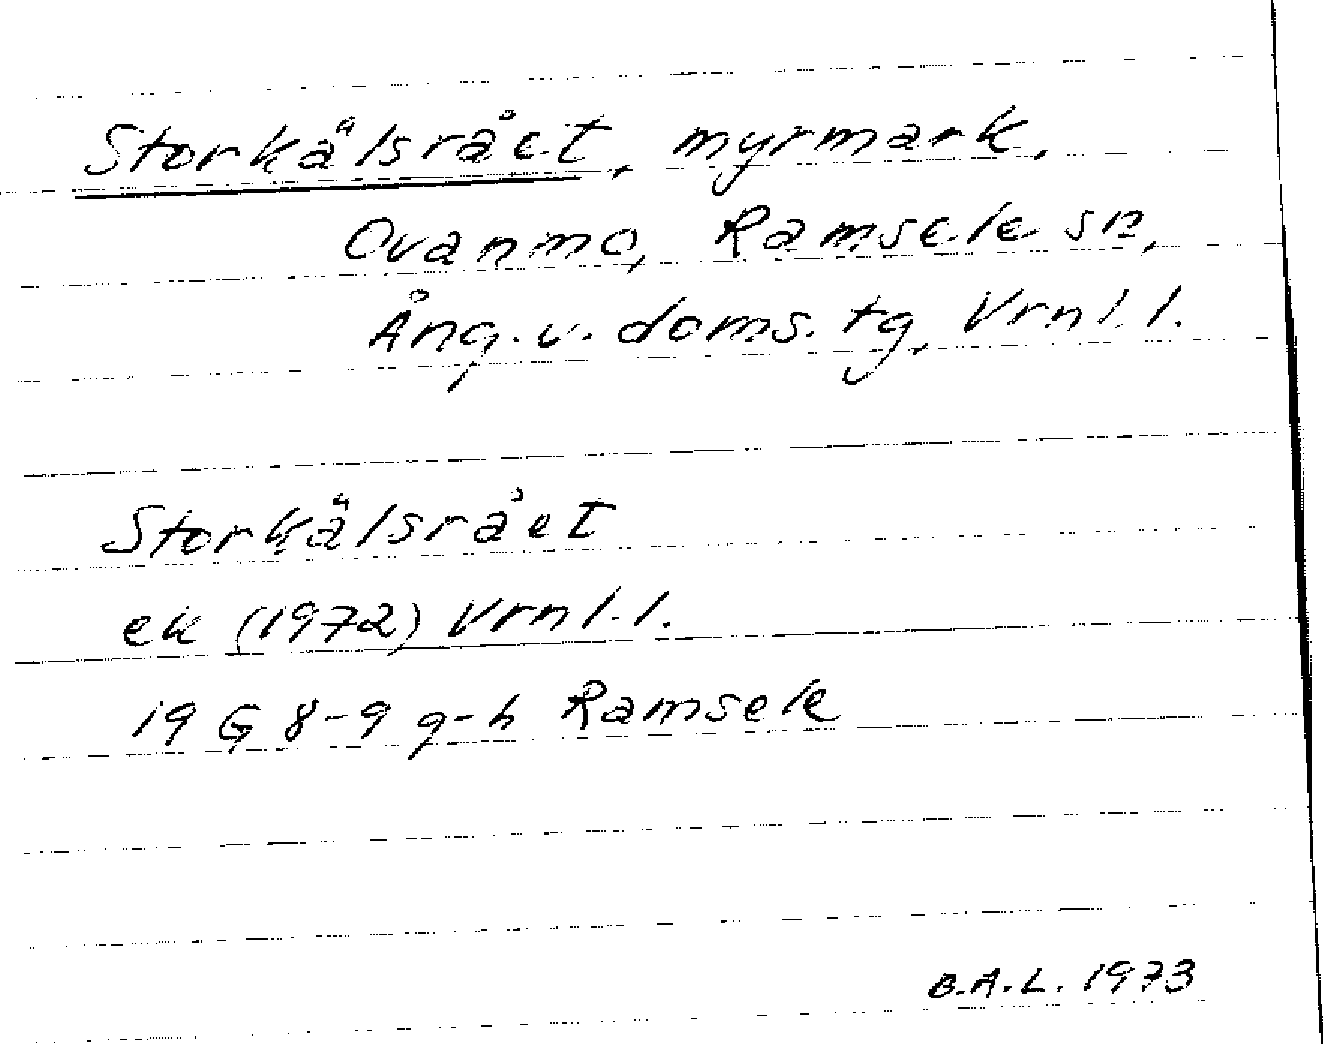 Storkälsrået, myrmark,
Ovanmo, Ramsele sn,
Ång. v. doms. tg, Vrnl. l.
Storkälsrået
ek (1972) Vrnl. l.
19 G 8-9 g-h Ramsele
B.A.L. 1973